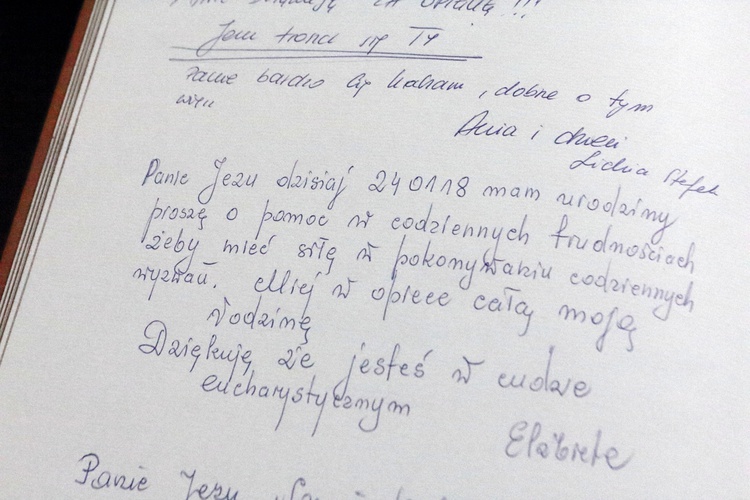 !!!
TY
Panie bardzo Cię kocham, dobrze o tym
wiesz
Ania i dzieci
Lidzia Stefek
Panie Jezu dzisiaj 240118 mam urodziny
proszę o pomoc w codziennych trudnościach
żeby mieć siłę w pokonywaniu codziennych
wyzwań. Miej w opiece całą moją
rodzinę
Dziękuję że jesteś w cudzie
eucharystycznym
Elżbieta
Panie Jezu